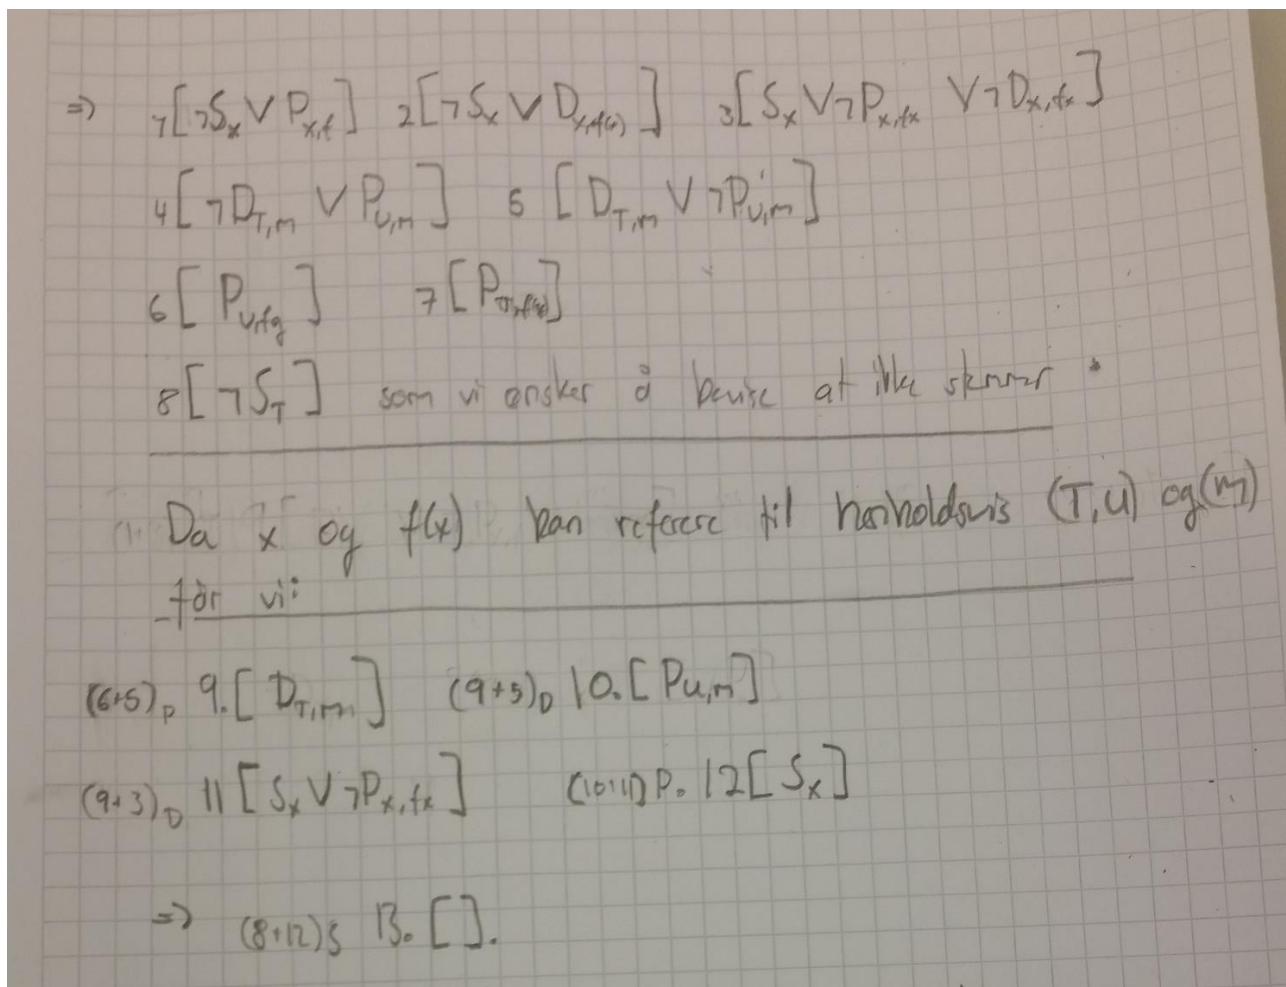 ⇒ 1[¬Sₓ ∨ Pₓ,f] 2[¬Sₓ ∨ Dₓ,f(x)] 3[Sₓ ∨ ¬Pₓ,fx ∨ ¬Dₓ,fx]
4[¬D_T,m ∨ P_U,m] 5 [D_T,m ∨ ¬P_U,m]
6[P_U,fg] 7[P]
8[¬S_T] som vi ønsker å bevise at ikke stemmer
Da x og f(x) kan referere til henholdsvis (T,U) og (m)
får vi:
(6+5)ₚ 9.[D_T,m] (9+5)_D 10.[Pu,m]
(9+3)_D 11[Sₓ ∨ ¬Pₓ,fx] (10+11)P. 12[Sₓ]
⇒ (8+12)S 13. [].